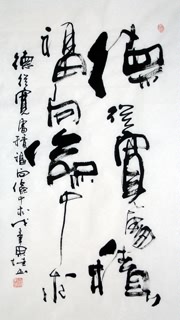 德從寬處積
福向儉中求
德從寬處積福向儉中求